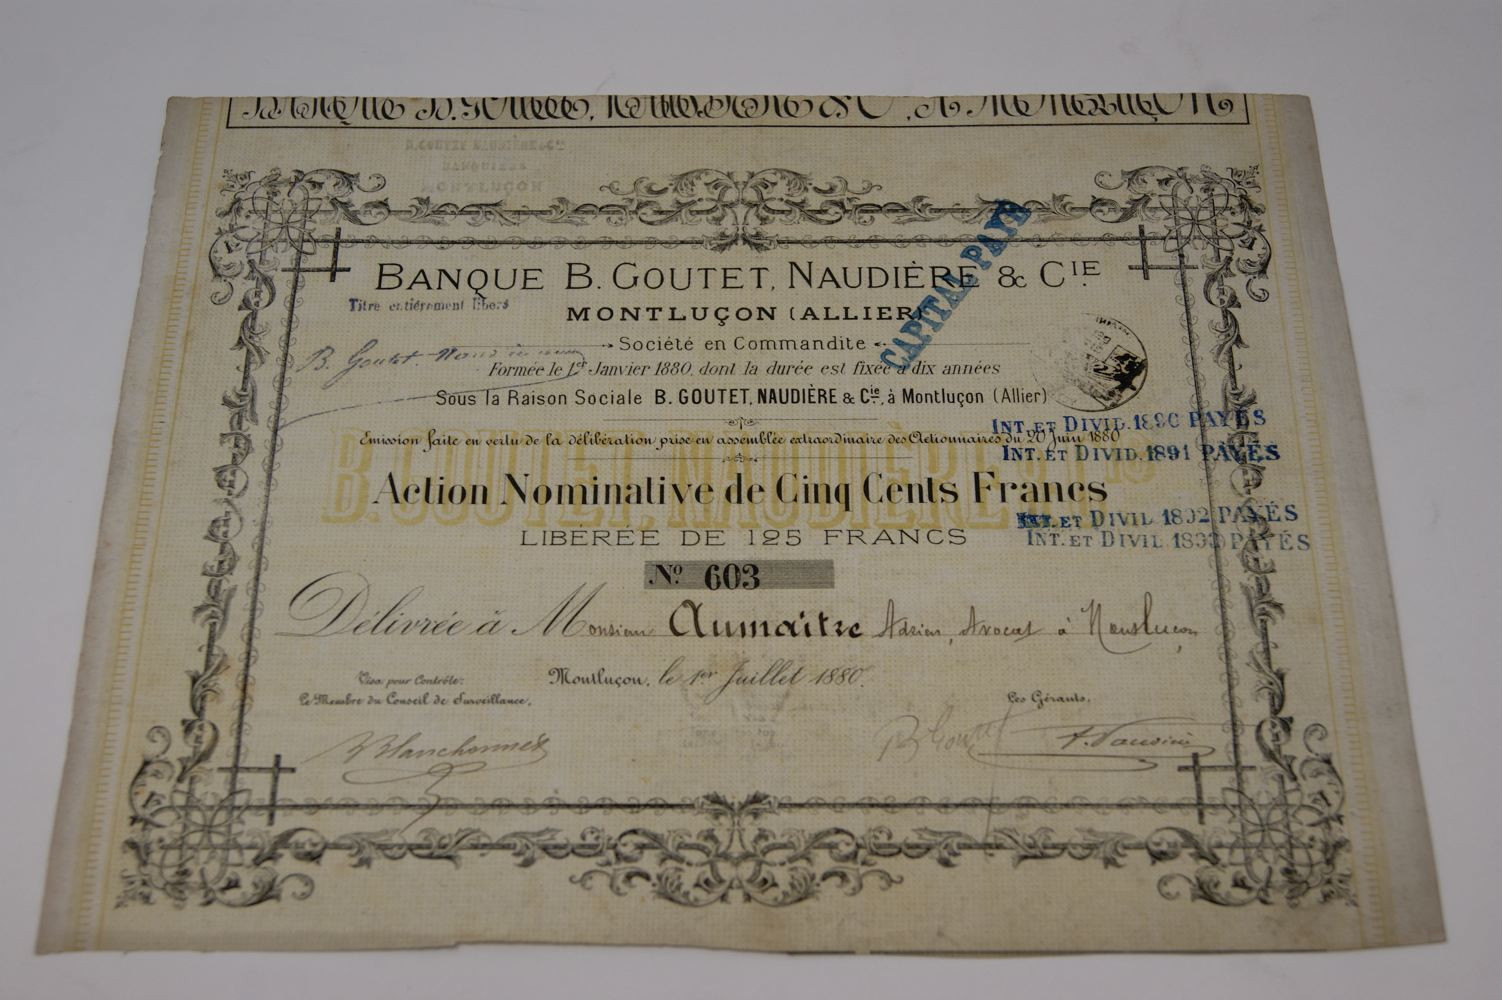 B. GOUTET NAUDIÈRE & Cie
BANQUIERS
MONTLUÇON
BANQUE B. GOUTET, NAUDIÈRE & CIE.
Titre entièrement libéré
MONTLUÇON (ALLIER)
CAPITAL PAYÉ
Société en Commandite
B. Goutet
Formée le 1er Janvier 1880, dont la durée est fixée à dix années
Sous la Raison Sociale B. GOUTET, NAUDIÈRE & Cie, à Montluçon (Allier)
Emission faite en vertu de la délibération prise en assemblée extraordinaire des Actionnaires du 20 Juin 1880
INT. ET DIVID. 1890 PAYÉS
INT. ET DIVID. 1891 PAYÉS
B. GOUTET, NAUDIÈRE
Action Nominative de Cinq Cents Francs
INT. ET DIVID. 1892 PAYÉS
LIBÉRÉE DE 125 FRANCS
INT. ET DIVID. 1893 PAYÉS
No. 603
Délivrée à Monsieur Aumaître Adrien, Avocat à Montluçon
Montluçon, le 1er Juillet 1880.
Visa pour Contrôle:
Le Membre du Conseil de Surveillance,
Les Gérants,
B Goutet